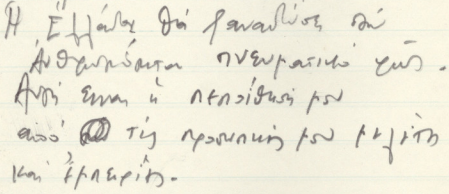 Ἡ Ἑλλάδα θά ξαναδώση στήν
Ἀνθρωπότητα πνευματικό φῶς.
Αυτή ειναι ἡ πεποίθησή μου
από τίς προσωπικής μου μελέτη
και ἐμπειρίες.